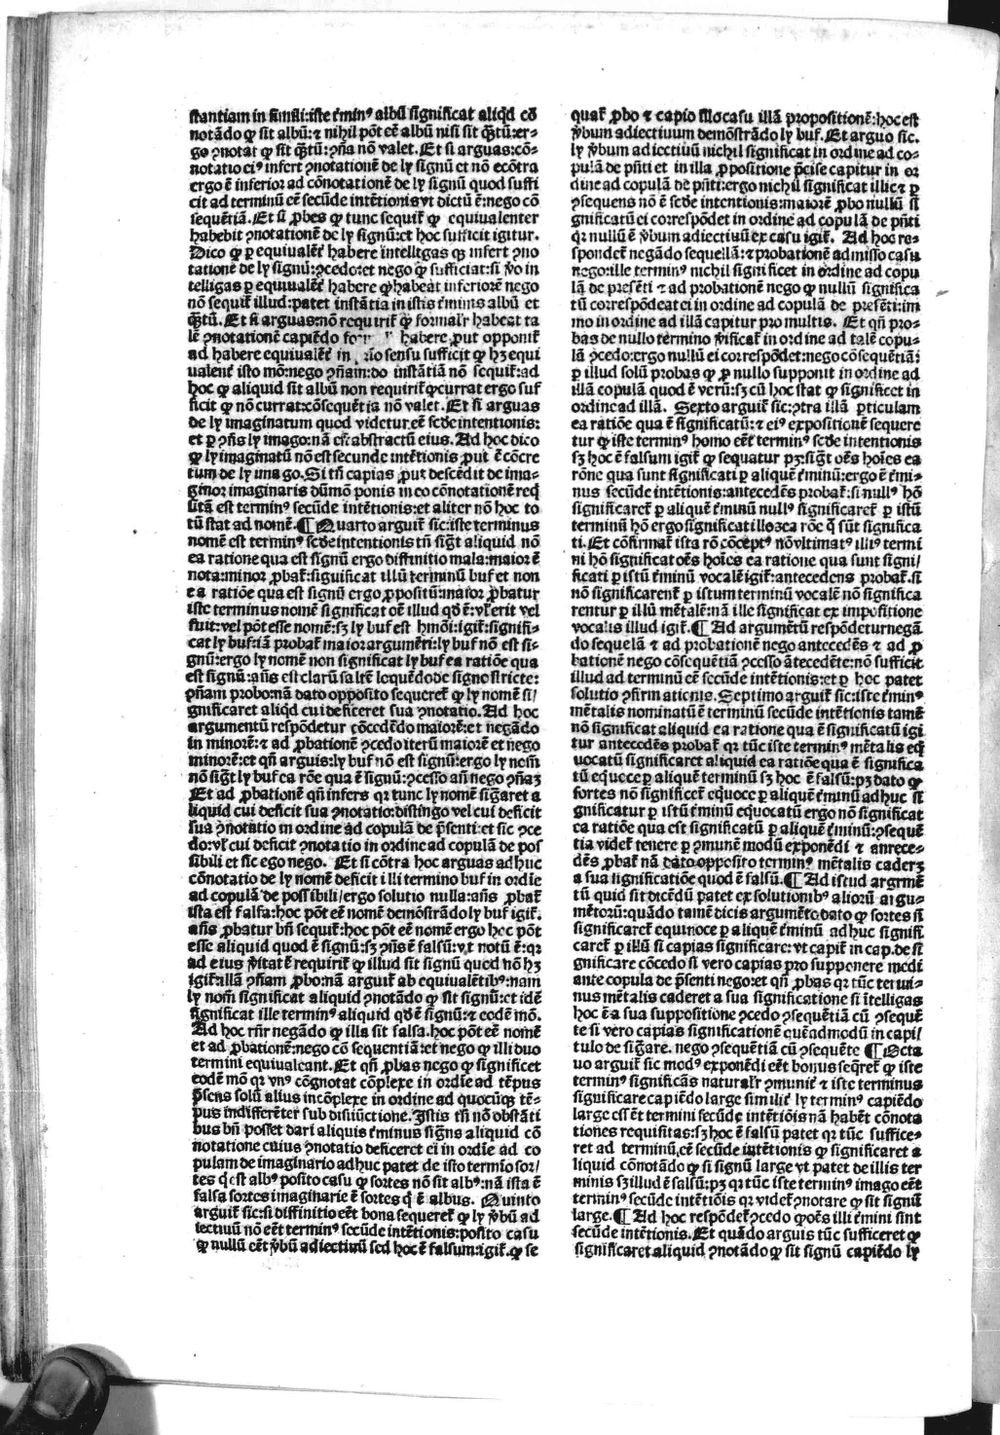 stantiam in simili: iste t̃minꝰ albũ significat aliqd̃ cõ
notãdo ꝙ sit albũ: ⁊ nihil põt eẽ albũ nisi sit q̃tũ: er-
go ꝯnotat ꝙ sit q̃tũ: ꝯñia nõ valet. Et si arguas: cõ-
notatio eiꝰ infert ꝯnotationẽ de ly signũ et nõ ecõtra
ergo ẽ inferior ad cõnotationẽ de ly signũ quod suffi
cit ad terminũ eẽ secũde intẽtionis vt dictũ ẽ: nego cõ
sequẽtiã. Et si ꝓbes ꝙ tunc sequit̃ ꝙ equivalenter
habebit ꝯnotationẽ de ly signũ: et hoc sufficit igitur.
Dico ꝙ ꝑ equivalẽt̃ habere intelligas ꝙ infert ꝯno
tationẽ de ly signũ: ꝯcedo: et nego ꝙ sufficiat: si ṽo in
telligas ꝑ equivalẽt̃ habere ꝙ habeat inferiorẽ nego
nõ sequit̃ illud: patet instãtia in istis t̃minis albũ et
q̃tũ. Et si arguas: nõ requirit̃ ꝙ formalr̃ habeat ta
lẽ ꝯnotationẽ capiẽdo habere ꝓut opponit̃
ad habere equivalẽt̃ in sensu sufficit ꝙ hꝫ equi
valent̃ isto mõ: nego ꝯñam: do instãtiã nõ sequit̃: ad
hoc ꝙ aliquid sit albũ non requirit̃ ꝙ currat ergo suf
ficit ꝙ nõ currat: cõsequẽtia nõ valet. Et si arguas
de ly imaginatum quod videtur eẽ scd̃e intentionis:
et ꝑ ꝯñs ly imago: nã est abstractũ eius. Ad hoc dico
ꝙ ly imaginatũ nõ est secunde intẽtionis ꝓut ẽ cõcre
tum de ly imago. Si tñ capias ꝓut descẽdit de ima-
ginor imaginaris dũmõ ponis in eo cõnotationẽ req̃
sitã est terminꝰ secũde intẽtionis: et aliter nõ hoc to
tũ stat ad nomẽ. ¶ Quarto arguit̃ sic: iste terminus
nomẽ est terminꝰ scd̃e intentionis tñ sig̃t aliquid nõ
ea ratione qua est signũ ergo diffinitio mala: maior ẽ
nota: minor ꝓbat̃: significat illũ terminũ buf et non
ea ratiõe qua est signũ ergo ꝓpositũ: maior ꝓbatur
iste terminus nomẽ significat oẽ illud qd̃ ẽ: vl̃ erit vel
fuit: vel põt esse nomẽ: sꝫ ly buf est hmõi: igit̃: signifi-
cat ly buf: iã probat̃ maior argumẽti: ly buf nõ est si-
gnũ: ergo ly nomẽ non significat ly buf ea ratiõe qua
est signũ: añs est clarũ saltẽ loquẽdo de signo stricte:
ꝯñam probo: nã dato opposito sequeret̃ ꝙ ly nomẽ si/
gnificaret aliqd̃ cui deficeret sua ꝯnotatio. Ad hoc
argumentũ respõdetur cõcedẽdo maiorẽ: et negãdo
in minorẽ: ⁊ ad ꝓbationẽ ꝯcedo iterũ maiorẽ et nego
minorẽ: et qñ arguis: ly buf nõ est signũ: ergo ly nom̃
nõ sig̃t ly buf ea rõe qua ẽ signũ: ꝯcesso añ nego ꝯñaꝫ
Et ad ꝓbationẽ qñ infers qꝛ tunc ly nomẽ sig̃aret a
liquid cui deficit sua ꝯnotatio: distingo vel cui deficit
sua ꝯnotatio in ordine ad copulã de p̃senti: et sic ꝯce
do: vl̃ cui deficit ꝯnotatio in ordine ad copulã de pos
sibili et sic ego nego. Et si cõtra hoc arguas adhuc
cõnotatio de ly nomẽ deficit illi termino buf in ordie
ad copulã de possibili/ergo solutio nulla: añs ꝓbat̃
ista est falsa: hoc põt eẽ nomẽ demõstrãdo ly buf igit̃.
añs ꝓbatur bñ sequit̃: hoc põt eẽ nomẽ ergo hoc põt
esse aliquid quod ẽ signũ: sꝫ ꝯñs ẽ falsũ: vt notũ ẽ: qꝛ
ad eius ṽitatẽ requirit̃ ꝙ illud sit signũ quod nõ hꝫ
igit̃: illã ꝯñam ꝓbo: nã arguit̃ ab equivalẽtibꝰ: nam
ly nom̃ significat aliquid ꝯnotãdo ꝙ sit signũ: et idẽ
significat ille terminꝰ aliquid qd̃ ẽ signũ: ⁊ eodẽ mõ.
Ad hoc rñr̃ negãdo ꝙ illa sit falsa. hoc põt eẽ nomẽ
et ad ꝓbationẽ: nego cõsequentiã: et nego ꝙ illi duo
termini equivaleant. Et qñ ꝓbas nego ꝙ significet
eodẽ mõ qꝛ vnꝰ cõgnotat cõplexe in ordie ad tẽpus
p̃sens solũ alius incõplexe in ordine ad quocũqꝫ tẽ-
pus indifferẽter sub disiũctione. Istis tñ nõ obstãti
bus bñ posset dari aliquis t̃minus sigñs aliquid cõ
notatione cuius ꝯnotatio deficeret ei in ordie ad co
pulam de imaginario adhuc patet de isto termino sor/
tes q̃ est albꝰ posito casu ꝙ sortes nõ sit albꝰ: nã ista ẽ
falsa sortes imaginarie ẽ sortes q̃ ẽ albus. Quinto
arguit̃ sic: si diffinitio eẽt bona sequeret̃ ꝙ ly ṽbũ ad
iectivũ nõ eẽt terminꝰ secũde intẽtionis: posito casu
ꝙ nullũ eẽt ṽbũ adiectivũ sed hoc ẽ falsum: igit̃. ꝙ se
quat̃ ꝓbo ⁊ capio illo casu illã propositionẽ: hoc est
ṽbum adiectiuum demõstrãdo ly buf. Et arguo sic.
ly ṽbum adiectiuũ nichil significat in ordine ad co-
pulã de pñti et in illa ꝓpositione p̃cise capitur in or
dine ad copulã de pñti: ergo nichil significat illic ⁊ ꝑ
ꝯsequens nõ ẽ scd̃e intentionis: maiorẽ ꝓbo nullũ si
gnificatũ ei correspõdet in ordine ad copulã de pñti
qꝛ nullũ ẽ ṽbum adiectiuũ ex casu igit̃. Ad hoc re-
spondet̃ negãdo sequelã: ⁊ probationẽ admisso casu
nego: ille terminꝰ nichil significet in ordine ad copu
lã de presẽti ⁊ ad probationẽ nego ꝙ nullũ significa
tũ correspõdeat ei in ordine ad copulã de presẽti: im
mo in ordine ad illã capitur pro multis. Et qñ pro-
bas de nullo termino ṽificat̃ in ordine ad talẽ copu-
lã ꝯcedo: ergo nullũ ei correspõdet: nego cõsequẽtiã:
ꝑ illud solũ probas ꝙ ꝓ nullo supponit in ordine ad
illã copulã quod ẽ verũ: sꝫ cũ hoc stat ꝙ significet in
ordine ad illã. Sexto arguit̃ sic: ꝯtra illã ꝑticulam
ea ratiõe qua ẽ significatũ: ⁊ eiꝰ expositionẽ sequere
tur ꝙ iste terminꝰ homo eẽt terminꝰ scd̃e intentionis
sꝫ hoc ẽ falsum igit̃ ꝙ sequatur pꝫ: sig̃t oẽs hoĩes ea
rõne qua sunt significati ꝑ aliquẽ t̃minũ: ergo ẽ t̃mi-
nus secũde intẽtionis: antecedẽs probat̃: si nullꝰ hõ
significaret̃ ꝑ aliquẽ t̃minũ nullꝰ significaret̃ ꝑ istũ
terminũ hõ ergo significat illos ea rõe q̃ sũt significa
ti. Et cõfirmat̃ ista rõ cõceptꝰ nõ vltimatꝰ illiꝰ termi
ni hõ significat oẽs hoĩes ea ratione qua sunt signi/
ficati ꝑ istũ t̃minũ vocalẽ igit̃: antecedẽs probat̃. si
nõ significarent̃ ꝑ istum terminũ vocalẽ nõ significa
rentur ꝑ illũ mẽtalẽ: nã ille significat ex impositione
vocalis illud igit̃. ¶ Ad argumẽtũ respõdetur negã
do sequelã ⁊ ad probationẽ nego antecedẽs ⁊ ad ꝓ
bationẽ nego cõsequẽtiã ꝯcesso ãtecedẽte: nõ sufficit
illud ad terminũ eẽ secũde intẽtionis: et ꝑ hoc patet
solutio ꝯfirmationis. Septimo arguit̃ sic: iste t̃minꝰ
mẽtalis nominatũ ẽ terminũ secũde intẽtionis tamẽ
nõ significat aliquid ea ratione qua ẽ significatũ igi
tur antecedẽs probat̃ qꝛ tũc iste terminꝰ mẽtalis eq̃
vocatũ significaret aliquid ea ratiõe qua ẽ significa
tũ equoce ꝑ aliquẽ terminũ sꝫ hoc ẽ falsũ: pꝫ dato ꝙ
sortes nõ significet̃ equoce ꝑ aliquẽ t̃minũ adhuc si
gnificatur ꝑ istũ t̃minũ equocatũ ergo nõ significat
ea ratiõe qua est significatũ ꝑ aliquẽ t̃minũ: ꝯsequẽ
tia videt̃ tenere ꝑ ꝯmunẽ modũ exponẽdi ⁊ antece-
dẽs ꝓbat̃ nã dato opposito terminꝰ mẽtalis caderꝫ
a sua significatiõe quod ẽ falsũ. ¶ Ad istud argumẽ
tũ quid sit dicẽdũ patet ex solutionibꝰ aliorũ argu-
mẽtorũ: quãdo tamẽ dicis argumẽto dato ꝙ sortes si
significaret̃ equinoce ꝑ aliquẽ t̃minũ adhuc signifi
caret̃ ꝑ illũ si capias significare: vt capit̃ in cap. de si
gnificare cõcedo si vero capias pro supponere medi
ante copula de p̃senti nego: et qñ ꝓbas qꝛ tũc termi-
nus mẽtalis caderet a sua significatione si ĩtelligas
hoc ẽ a sua suppositione ꝯcedo ꝯsequẽtiã cũ ꝯsequẽ
te si vero capias significationẽ quẽadmodũ in capi/
tulo de sig̃are. nego ꝯsequẽtiã cũ ꝯsequẽte ¶ Octa
uo arguit̃ sic modꝰ exponẽdi eẽt bonus seq̃ret̃ ꝙ iste
terminꝰ significãs naturalr̃ ꝯmunit̃ ⁊ iste terminus
significare capiẽdo large similit̃ ly terminꝰ capiẽdo
large essẽt termini secũde intẽtiõis nã habẽt cõnota
tiones requisitas: sꝫ hoc ẽ falsũ patet qꝛ tũc suffice-
ret ad terminũ eẽ secũde intẽtionis ꝙ significaret a
liquid cõnotãdo ꝙ si signũ large vt patet de illis ter
minis sꝫ illud ẽ falsũ: pꝫ qꝛ tũc iste terminꝰ imago eẽt
terminꝰ secũde intẽtiõis qꝛ videt̃ ꝯnotare ꝙ sit signũ
large. ¶ Ad hoc respõdet̃ ꝯcedo ꝙ oẽs illi t̃mini sint
secũde intẽtionis. Et quãdo arguis tũc sufficeret ꝙ
significaret aliquid ꝯnotãdo ꝙ sit signũ capiẽdo ly